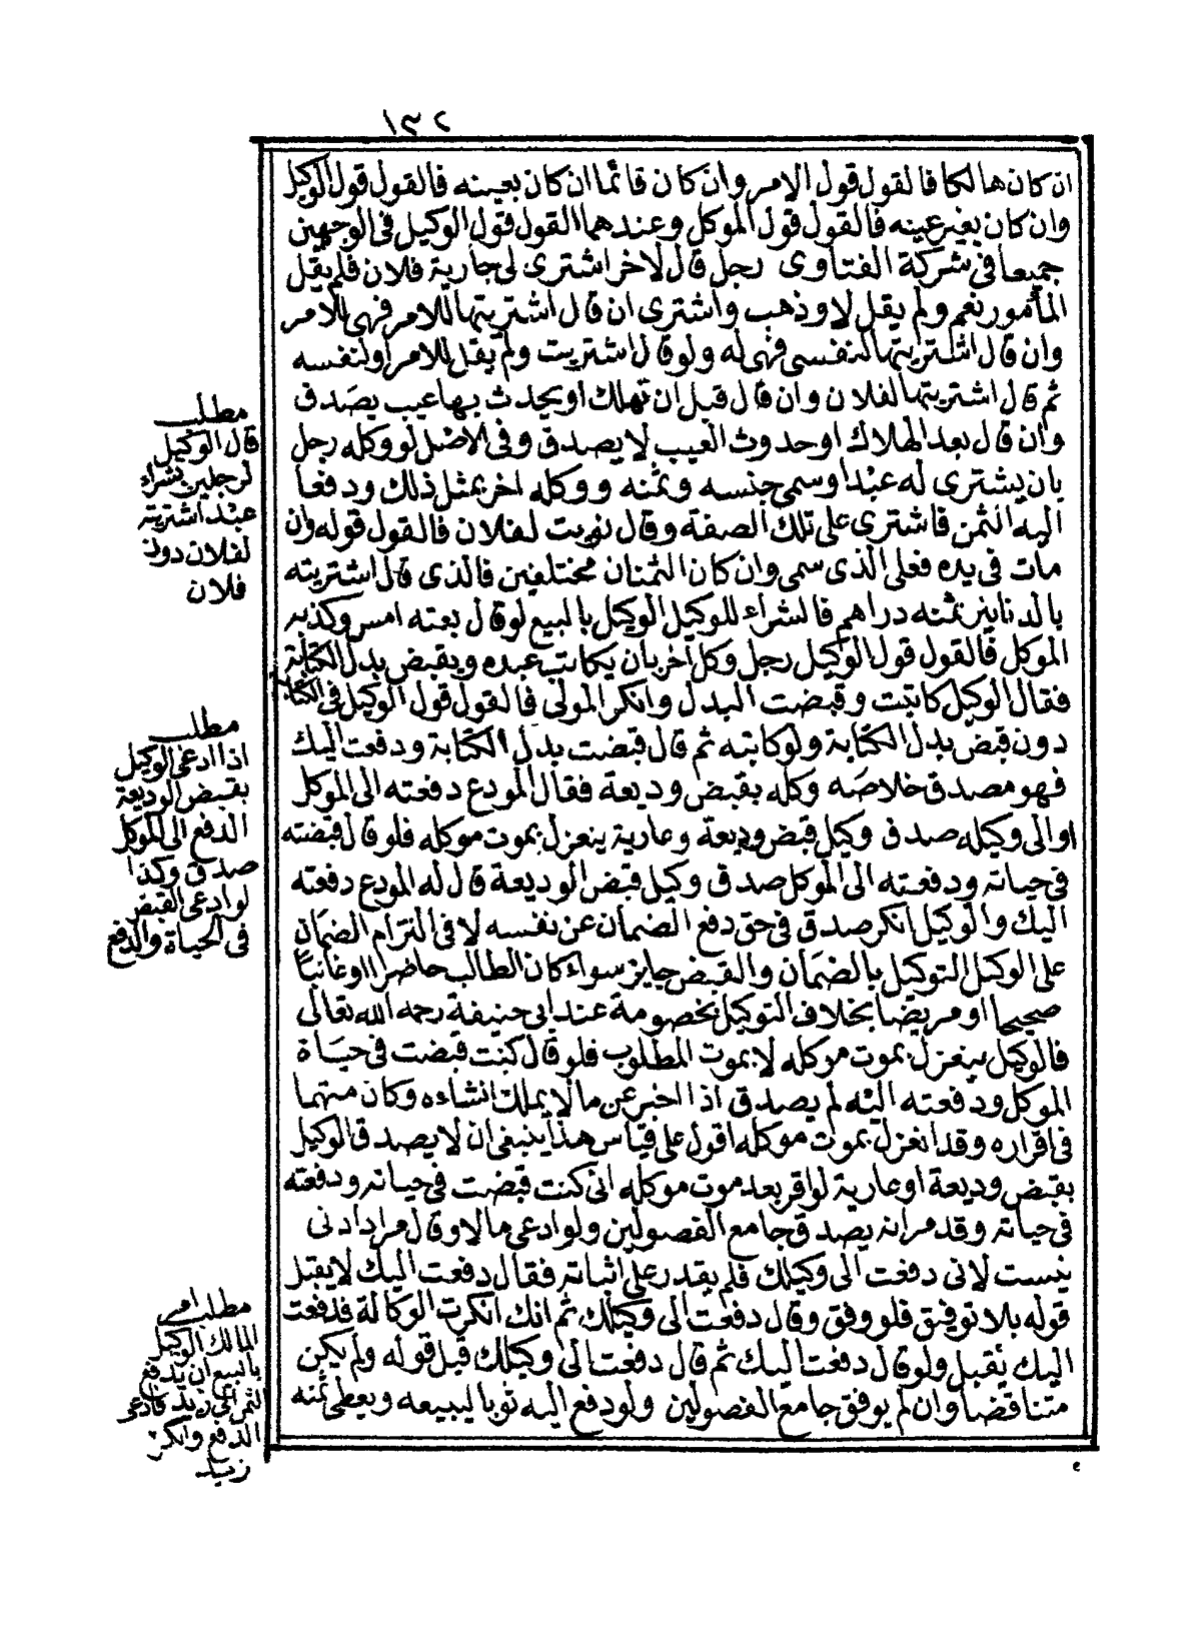 ١٣٢
ان كان هالكا فالقول قول الامر وان كان قائما ان كان بعينه فالقول قول الوكيل
وان كان بغير عينه فالقول قول الموكل وعندهما القول قول الوكيل فى الوجهين
جميعا فى شركة الفتاوى رجل قال لاخر اشترى لى جارية فلان فلم يقل
المأمور نعم ولم يقل لا وذهب واشترى ان قال اشتريتها للامر فهى للامر
وان قال اشتريتها لنفسى فهى له ولو قال اشتريت ولم يقل للامر او لنفسه
ثم قال اشتريتها لفلان وان قال قبل ان تهلك او يحدث بها عيب يصدق
وان قال بعد الهلاك او حدوث العيب لا يصدق وفى الاصل لو وكله رجل
بان يشترى له عبدا وسمى جنسه وثمنه ووكله اخر بمثل ذلك ودفعا
اليه الثمن فاشترى على تلك الصفة وقال نويت لفلان فالقول قوله وان
مات فى يده فعلى الذى سمى وان كان الثمنان مختلفين فالذى قال اشتريته
بالدنانير ثمنه دراهم فالشراء للوكيل الوكيل بالبيع لو قال بعته امس وكذبه
الموكل فالقول قول الوكيل رجل وكل اخر بان يكاتب عبده ويقبض بدل الكتابة
فقال الوكيل كاتبت وقبضت البدل وانكر المولى فالقول قول الوكيل فى الكتابة
دون قبض بدل الكتابة ولو كاتبه ثم قال قبضت بدل الكتابة ودفعت اليك
فهو مصدق خلاصه وكله بقبض وديعة فقال المودع دفعته الى الموكل
او الى وكيله صدق وكيل قبض وديعة وعارية ينعزل بموت موكله فلو قال قبضته
فى حياته ودفعته الى الموكل صدق وكيل قبض الوديعة قال له المودع دفعته
اليك والوكيل انكر صدق فى حق دفع الضمان عن نفسه لا فى التزام الضمان
على الوكيل التوكيل بالضمان والقبض جايز سواء كان الطالب حاضرا او غائبا
صحيحا او مريضا بخلاف التوكيل بخصومة عند ابى حنيفة رحمه الله تعالى
فالوكيل ينعزل بموت موكله لا بموت المطلوب فلو قال كنت قبضت فى حياة
الموكل ودفعته اليه لم يصدق اذا اخبر عن ما لا يملك انشاءه وكان متهما
فى اقراره وقد انعزل بموت موكله اقول على قياس هذا ينبغى ان لا يصدق الوكيل
بقبض وديعة او عارية لو اقر بعد موت موكله انى كنت قبضت فى حياته ودفعته
فى حياته وقد مر انه يصدق جامع الفصولين ولو ادعى مالا وقال مراد ادنى
نيست لانى دفعت الى وكيلك فلم يقدر على اثباته فقال دفعت اليك لا يقبل
قوله بلا توفيق فلو وفق وقال دفعت الى وكيلك ثم انك انكرت الوكالة فدفعت
اليك يقبل ولو قال دفعت اليك ثم قال دفعت الى وكيلك قبل قوله ولم يكن
متناقضا وان لم يوفق جامع الفصولين ولو دفع اليه ثوبا ليبيعه ويعطى ثمنه
مطلب
قال الوكيل
لرجلين بشراء
عبد اشتريته
لفلان دون
فلان
مطلب
اذا ادعى الوكيل
بقبض الوديعة
الدفع الى الموكل
صدق وكذا
لو ادعى القبض
فى الحياة والدفع
مطلب امر
المالك الوكيل
بالبيع ان يدفع
الثمن الى زيد فادعى
الدفع وانكر
زيد